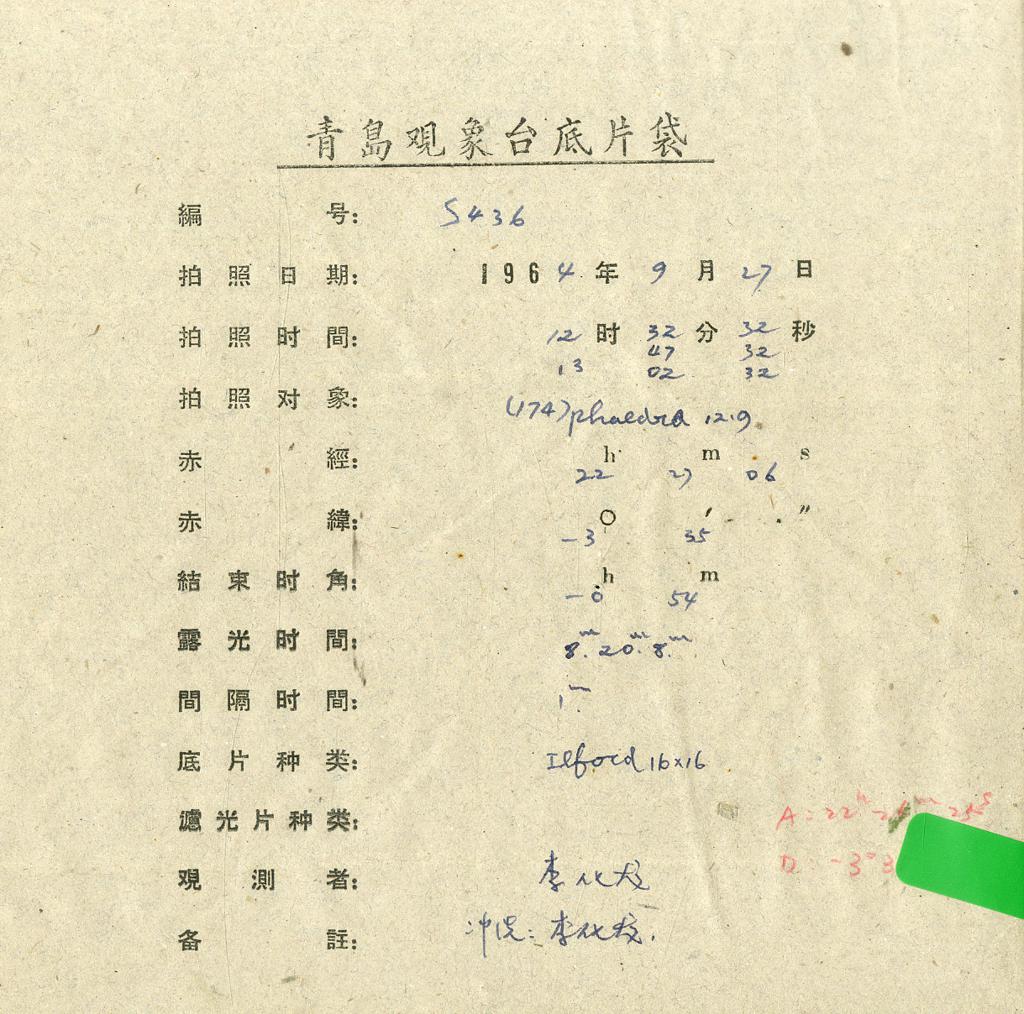 青島观象台底片袋
編号: S436
拍照日期: 1964年9月27日
拍照时間: 12时32分32秒
47 32
13 02 32
拍照对象: (174) phaedra 12.9
赤經: 22h 27m 06s
赤緯: -3° 35′ ″
結束时角: -0h 54m
露光时間: 8m. 20m. 8m.
間隔时間: 1m.
底片种类: Ilford 16×16
濾光片种类:
A: 22h
D: -3°
观測者: 李
备註: 冲洗: 李